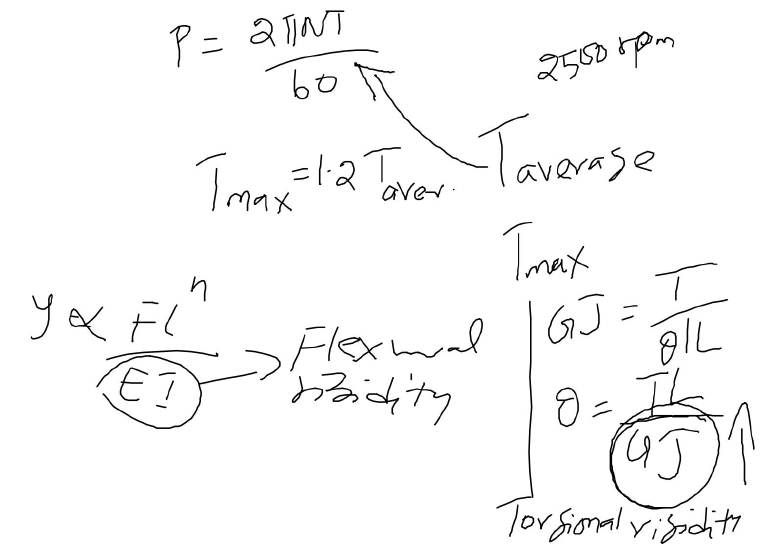 P = 2πNT / 60
2500 rpm
Tmax = 1.2 Taver.
Taverage
y ∝ Fl^n / EI
Flexural rigidity
Tmax
GJ = T / θ/L
θ = TL / GJ
Torsional rigidity